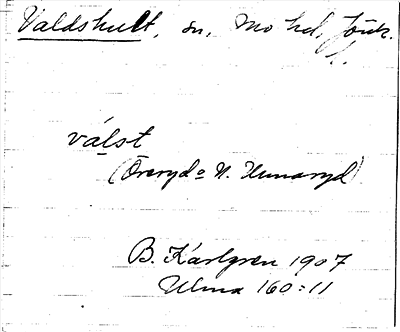 Valdshult, sn, Mo hd, Jönk. l.
válst
(Öreryd o N. Unnaryd)
B. Karlgren 1907
Ulma 160:11